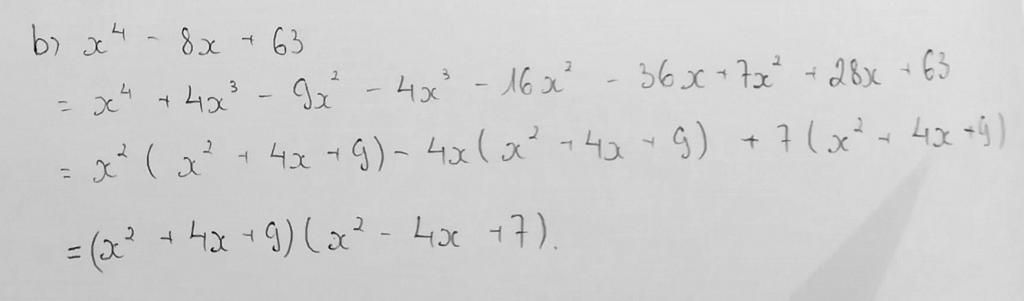 b) x⁴ - 8x + 63
= x⁴ + 4x³ - 9x² - 4x³ - 16x² - 36x + 7x² + 28x + 63
= x² ( x² + 4x + 9) - 4x ( x² + 4x + 9) + 7 ( x² + 4x + 9)
= (x² + 4x + 9) ( x² - 4x + 7).